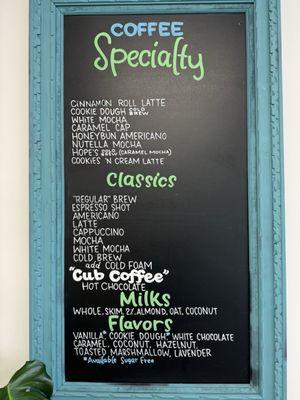 COFFEE
Specialty
CINNAMON ROLL LATTE
COOKIE DOUGH COLD BREW
WHITE MOCHA
CARAMEL CAP
HONEYBUN AMERICANO
NUTELLA MOCHA
HOPE'S COLD BREW (CARAMEL MOCHA)
COOKIES 'N CREAM LATTE
Classics
"REGULAR" BREW
ESPRESSO SHOT
AMERICANO
LATTE
CAPPUCCINO
MOCHA
WHITE MOCHA
COLD BREW
add COLD FOAM
"Cub Coffee"
HOT CHOCOLATE
Milks
WHOLE, SKIM, 2%, ALMOND, OAT, COCONUT
Flavors
VANILLA* COOKIE DOUGH* WHITE CHOCOLATE
CARAMEL, COCONUT, HAZELNUT,
TOASTED MARSHMALLOW, LAVENDER
*Available Sugar Free